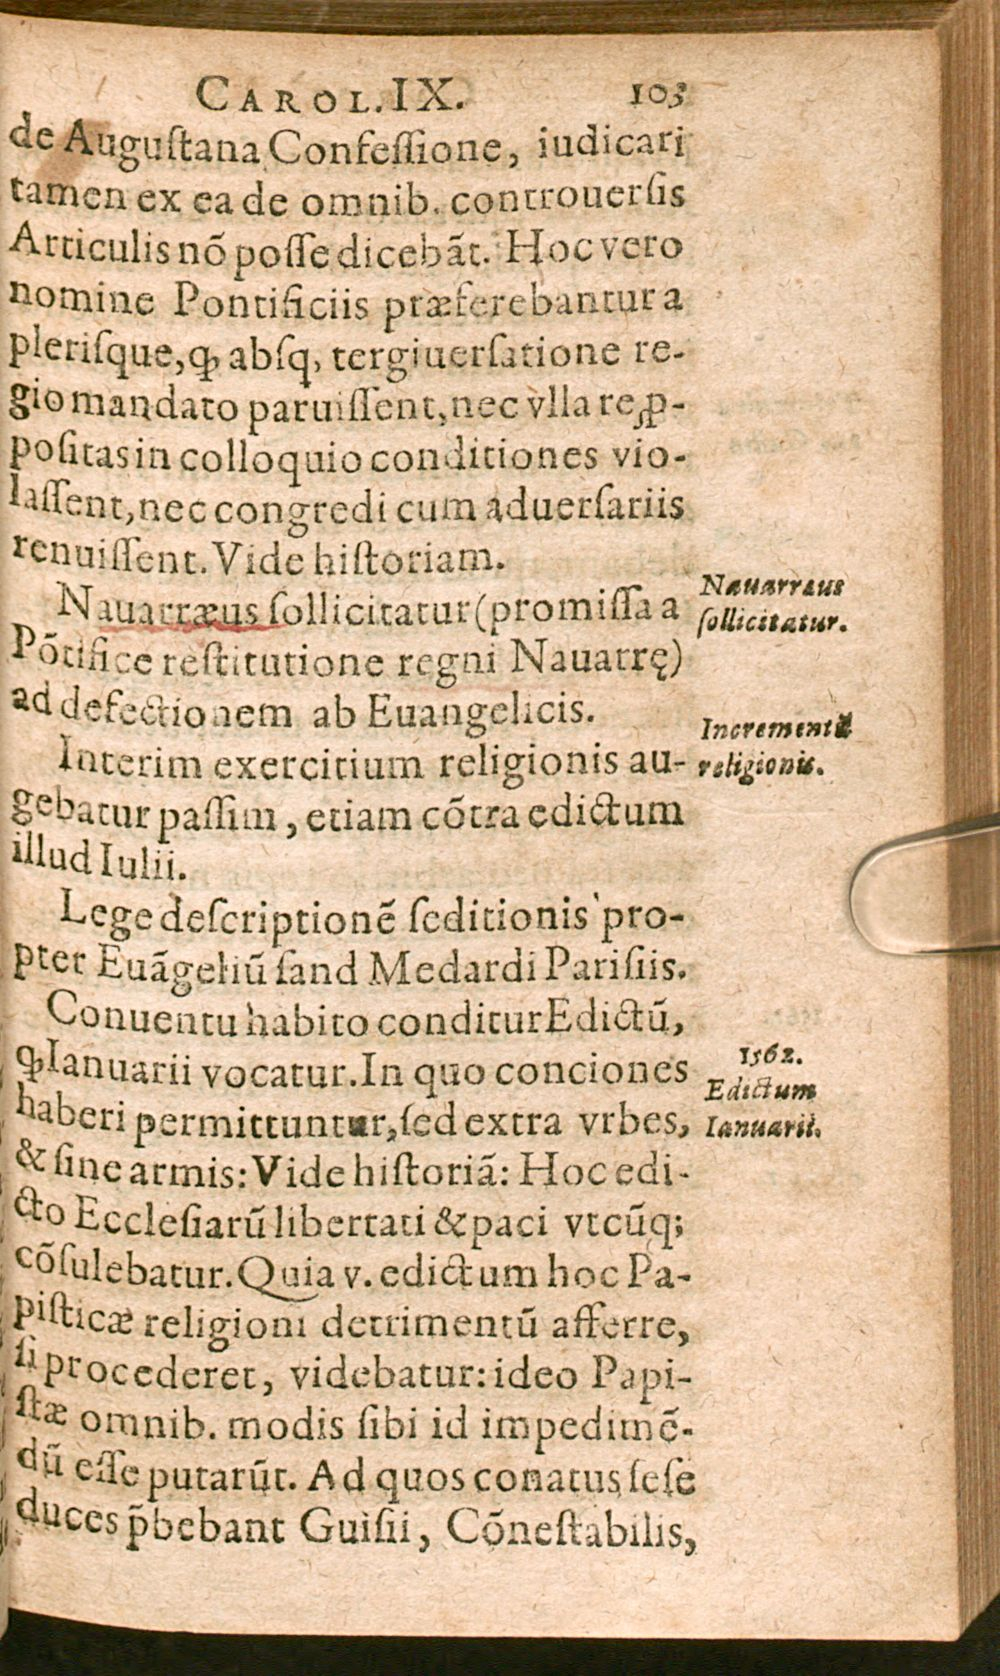 CAROL. IX. 103
de Auguſtana Confeſſione, iudicari
tamen ex ea de omnib. controuerſis
Articulis nõ poſſe dicebãt. Hoc vero
nomine Pontificiis præferebantur a
pleriſque, ꝙ abſq, tergiuerſatione re-
gio mandato paruiſſent, nec vlla re ꝓ-
poſitas in colloquio conditiones vio-
laſſent, nec congredi cum aduerſariis
renuiſſent. Vide hiſtoriam.
Nauarræus ſollicitatur (promiſſa a
Põtifice reſtitutione regni Nauarrę)
ad defectionem ab Euangelicis.
Nauarræus
ſollicitatur.
Interim exercitium religionis au-
gebatur paſſim, etiam cõtra edictum
illud Iulii.
Incrementũ
religionis.
Lege deſcriptionẽ ſeditionis pro-
pter Euãgeliũ ſand Medardi Pariſiis.
Conuentu habito conditur Edictũ,
ꝙ Ianuarii vocatur. In quo conciones
haberi permittuntur, ſed extra vrbes,
& ſine armis: Vide hiſtoriã: Hoc edi-
cto Eccleſiarũ libertati & paci vtcũq;
cõſulebatur. Quia v. edictum hoc Pa-
piſticæ religioni detrimentũ afferre,
ſi procederet, videbatur: ideo Papi-
ſtæ omnib. modis ſibi id impedimẽ-
dũ eſſe putarũt. Ad quos conatus ſeſe
duces p̃bebant Guiſii, Cõneſtabilis,
1562.
Edictum
Ianuarii.